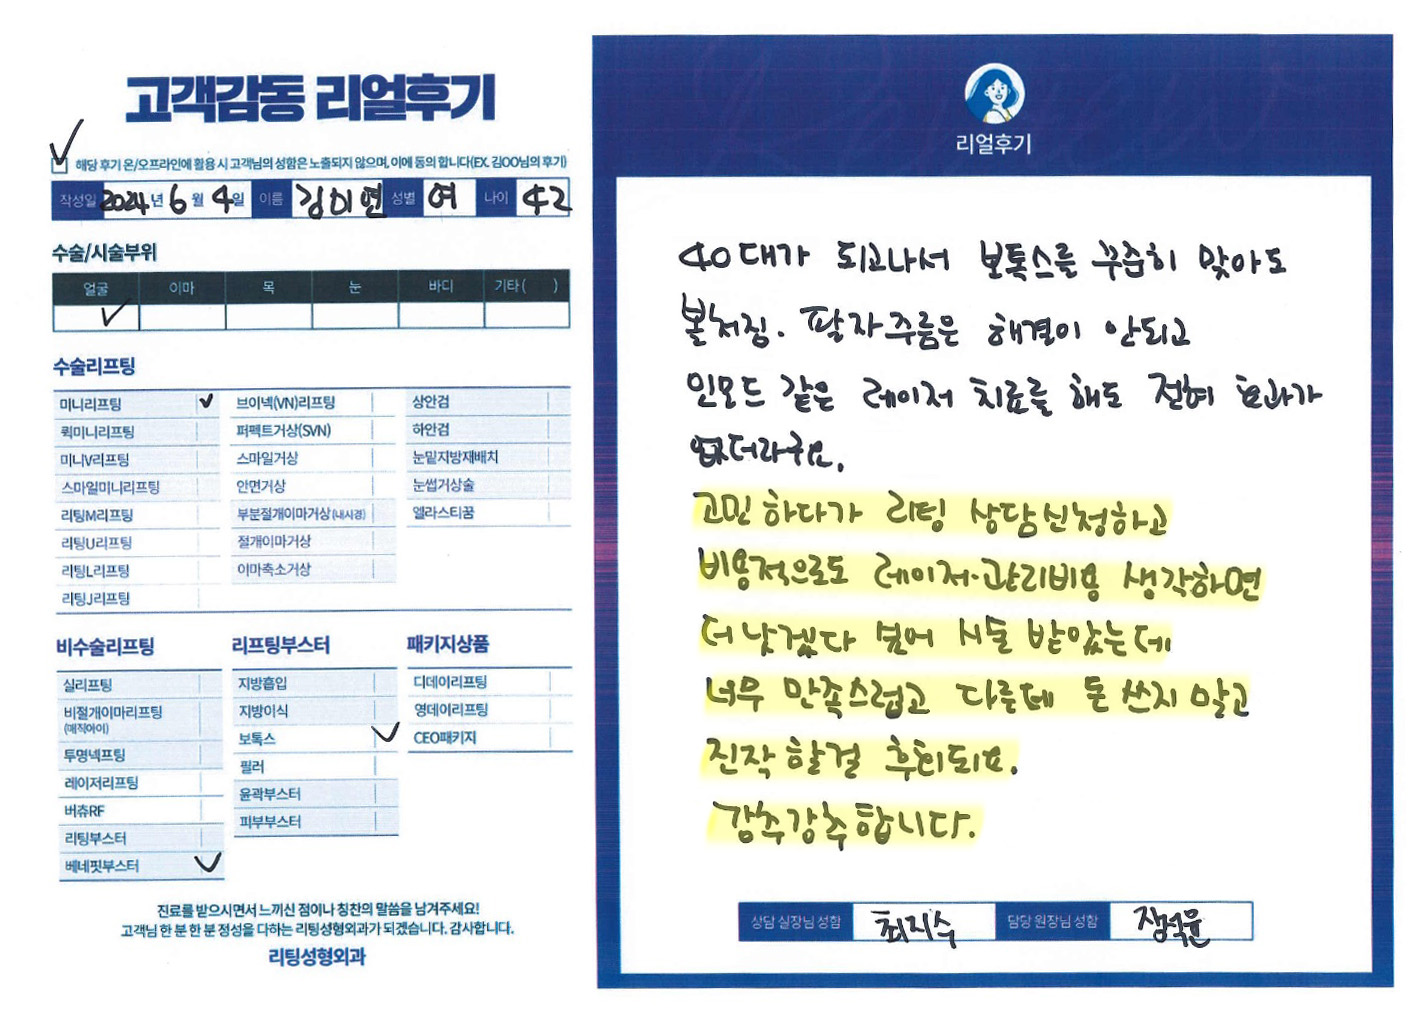 고객감동 리얼후기
해당 후기 온/오프라인에 활용 시 고객님의 성함은 노출되지 않으며, 이에 동의 합니다(EX. 김OO님의 후기)
작성일 2024년 6월 4일 이름 김미연 성별 여 나이 42
수술/시술부위
얼굴 이마 목 눈 바디 기타( )
수술리프팅
미니리프팅
퀵미니리프팅
미니V리프팅
스마일미니리프팅
리팅M리프팅
리팅U리프팅
리팅L리프팅
리팅J리프팅
브이넥(VN)리프팅
퍼펙트거상(SVN)
스마일거상
안면거상
부분절개이마거상(내시경)
절개이마거상
이마축소거상
상안검
하안검
눈밑지방재배치
눈썹거상술
엘라스티꿈
비수술리프팅
실리프팅
비절개이마리프팅
(매직아이)
투명넥프팅
레이저리프팅
버츄RF
리팅부스터
베네핏부스터
리프팅부스터
지방흡입
지방이식
보톡스
필러
윤곽부스터
피부부스터
패키지상품
디데이리프팅
영데이리프팅
CEO패키지
진료를 받으시면서 느끼신 점이나 칭찬의 말씀을 남겨주세요!
고객님 한 분 한 분 정성을 다하는 리팅성형외과가 되겠습니다. 감사합니다.
리팅성형외과
리얼후기
40대가 되고나서 보톡스를 꾸준히 맞아도
볼처짐. 팔자주름은 해결이 안되고
인모드 같은 레이저 치료를 해도 전혀 효과가
없더라구요.
고민하다가 리팅 상담신청하고
비용적으로도 레이저·관리비용 생각하면
더 낫겠다 싶어 시술 받았는데
너무 만족스럽고 다른데 돈 쓰지 말고
진작 할걸 후회되요.
강추강추합니다.
상담 실장님 성함 최지수 담당 원장님 성함 장석윤